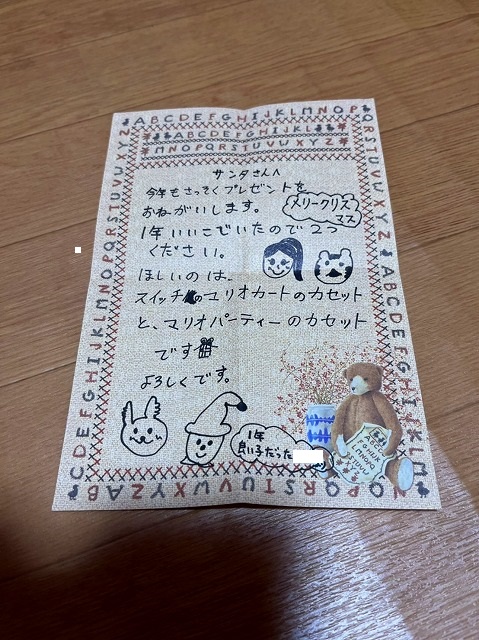 ABCDEFGHIJKLMNOPQRSTUVWXYZ
ABCDEFGHIJKL
MNOPQRSTUVWXYZ
サンタさんへ
今年もさっそくプレゼントを
おねがいします。
メリークリス
マス
1年いいこでいたので2つ
ください。
ほしいのは、
スイッチのマリオカートのカセット
と、マリオパーティーのカセット
です
よろしくです。
1年
良い子だった